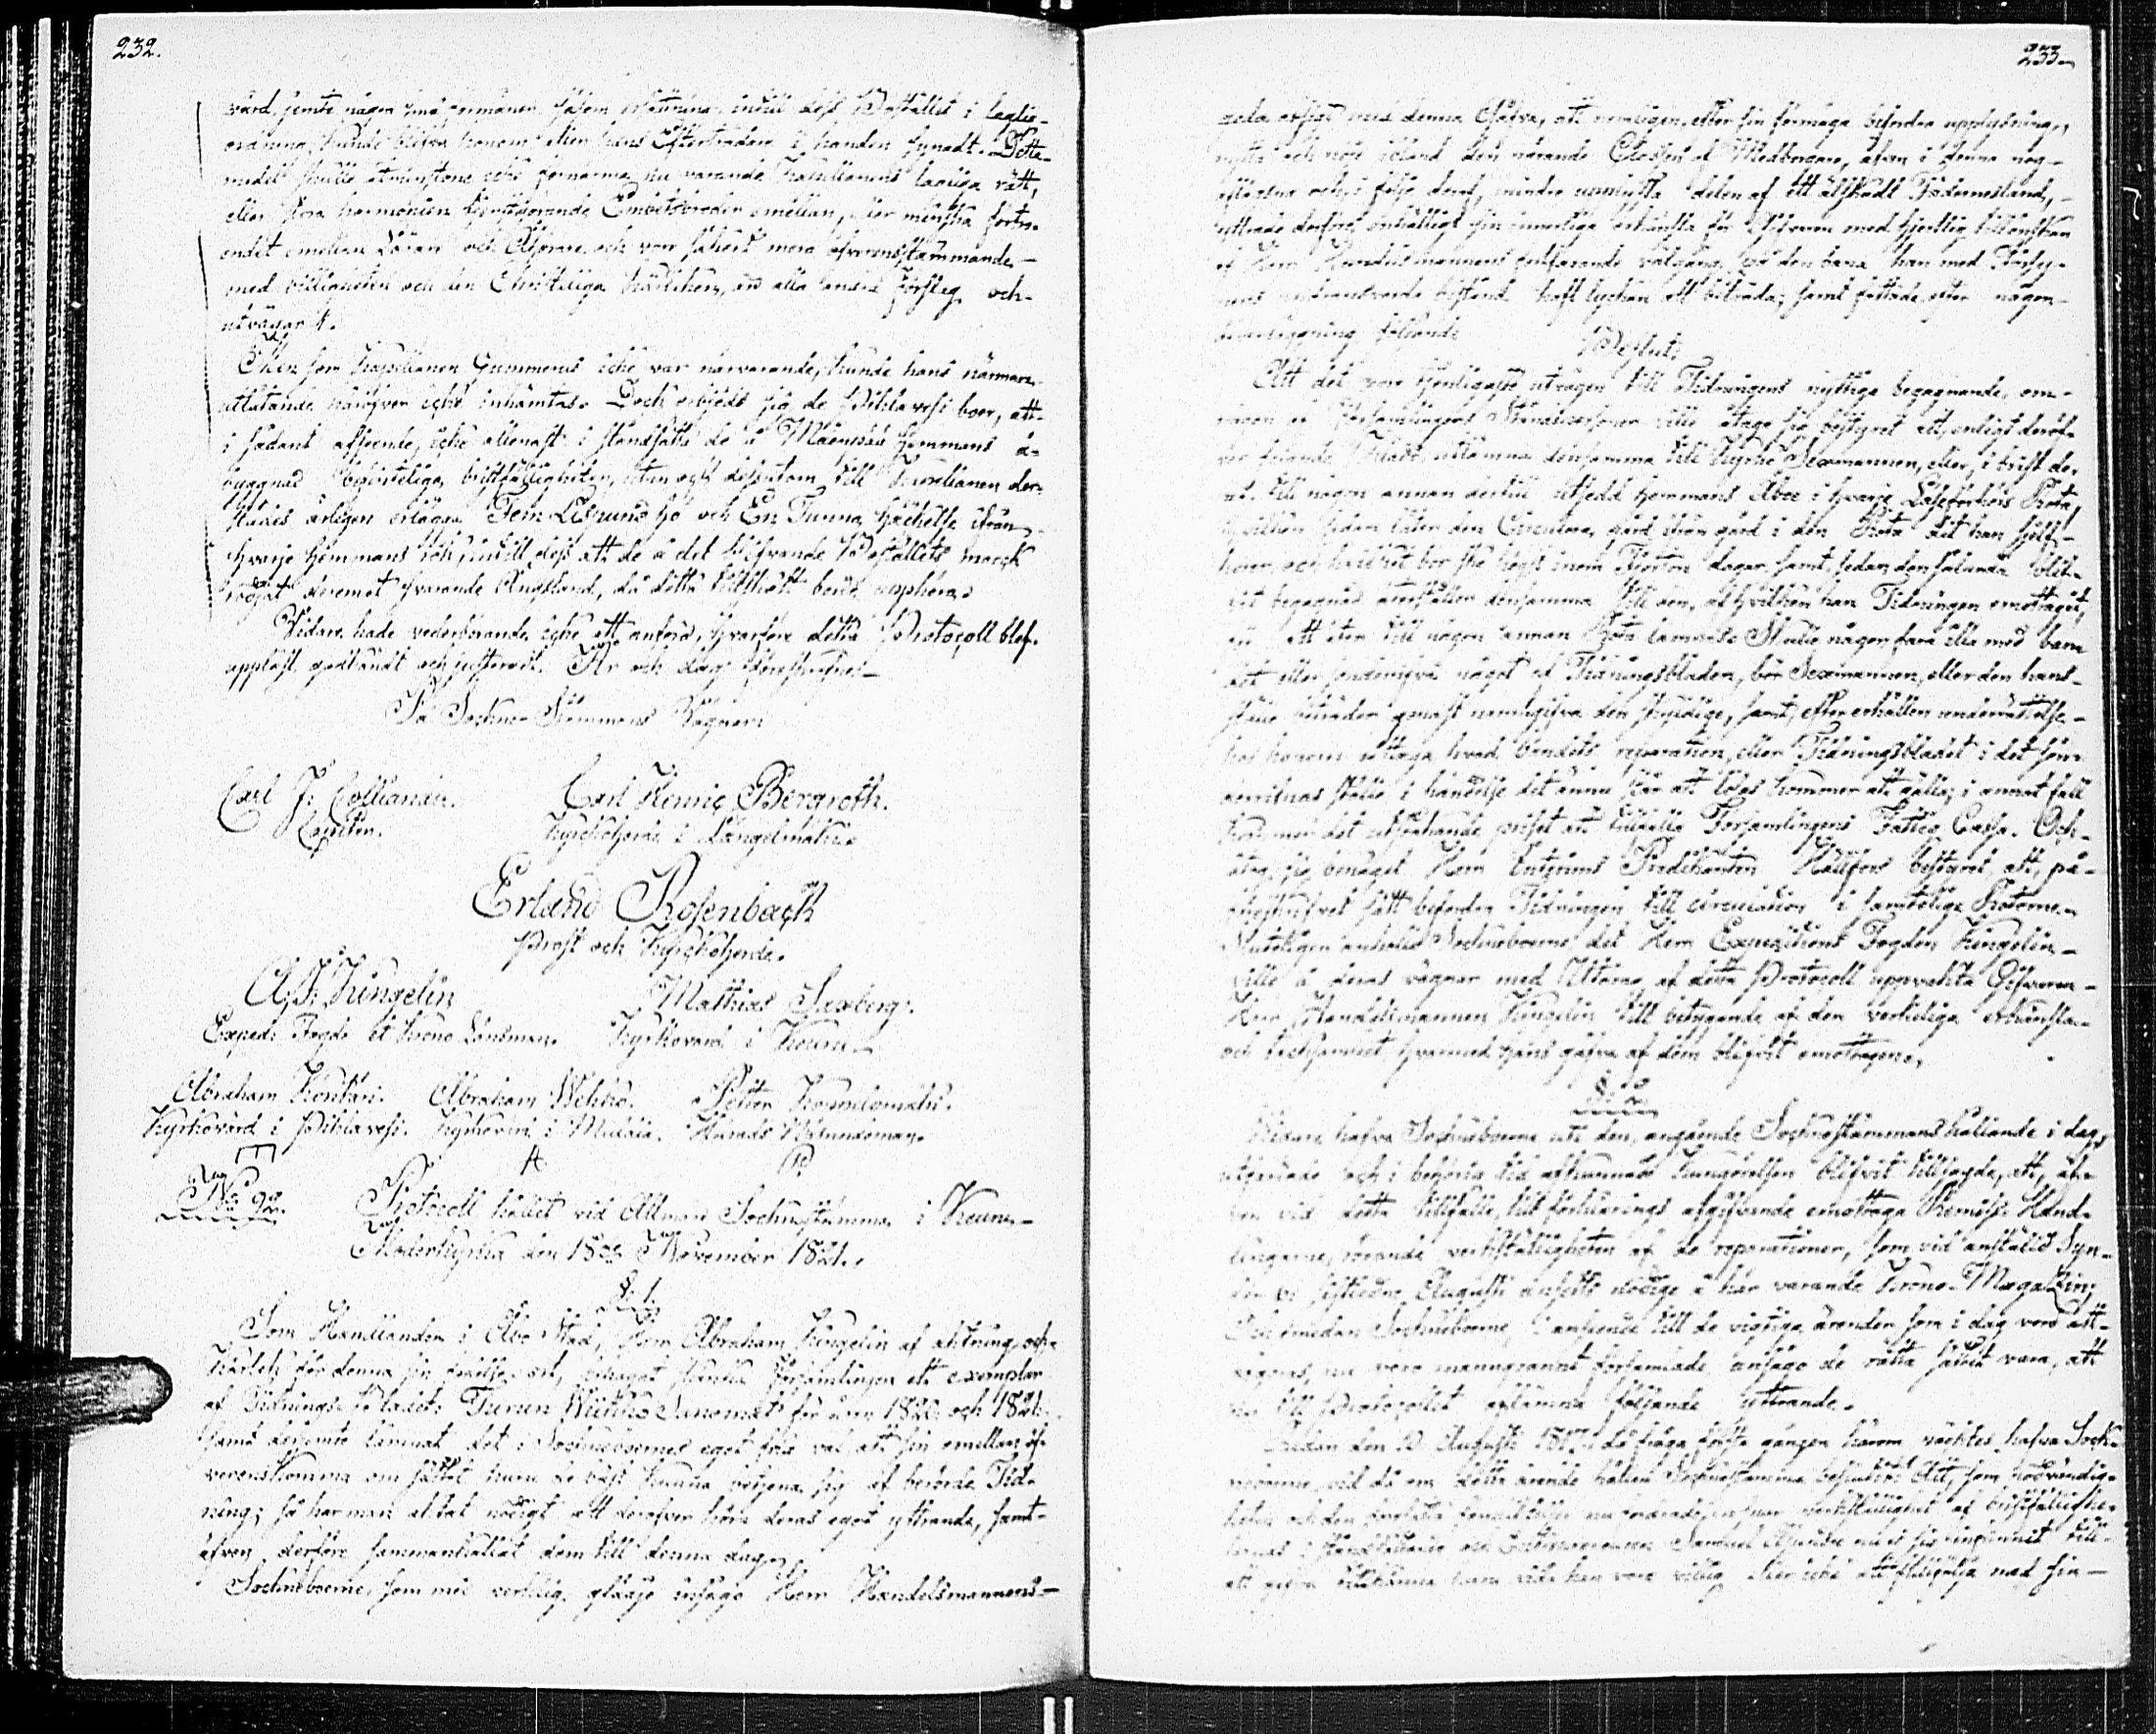 232.
värd jemte någon små förmåner såsom ersättning, intill dess Bostället i laglig
ordning kunde blifva honom eller hans Efterträdare i handen synadt. Detta
medel skulle åtminstone icke förnärma nu varande Kapellanens lagliga rätt,
eller störa harmonien Embetsbröder emellan, eller minska förtro-
endet emellan Läraren och Åhörare och vore säkert mera öfverensstämmande
med billigheten och den Christeliga kärleken, än alla andra förslag och
utvägar.
Men som Kapellanen Gummerus icke var närvarande, kunde hans närmare
utlåtande häröfver icke inhämtas. Dock erbjödo sig de Pihlavesi boer, att
i sådant afseende, icke allenast i ståndsätta de å Mäenpää Hemmans å-
byggnad befinteliga bristfälligheter, utan ock dessutom till Kapellanen der-
städes årligen erlägga Fem Lispund hö och En Tunna Hackelse ifrån
hvarje Hemmans rök, intill dess att de å det blifvande Boställets marck
rödjat deremot svarande Ängsland, då detta tillskott borde upphöra.
Vidare hade vederbörande icke att anföra, hvarföre detta Protocoll blef
uppläst, godkändt och justeradt. År och dag föreskrifne.
På Sockne Stämmans Vägnar:
Carl J. Colliander. Carl Henric Bergroth.
Kapellan. Kyrckoherde i Längelmäki.
Erland Rosenback
Prost och Kyrckoherde.
A: J: Kingelin Mathias Saxberg.
Exped: Fogde et Krono Länsman. Kyrkovärd i Keuru.
Abraham Abraham Wehko. Petter
Kyrkovärd i Pihlavesi. Kyrkovärd i Multia. Härads Nämndeman.
No 92. Protocoll hållet vid Allmän Socknestämma i Keuru
Moderkyrka den 18de November 1821.
§. 1.
Som Handlanden i Åbo Stad, Herr Abraham Kingelin af aktning och
kärlek för denna sin födelse ort, behagat skänka Församlingen ett exemplar
af Tidnings bladet: Turun Wiikko Sanomat för åren 1820 och 1821:
samt derjemte lämnat det i Socknéboernes eget fria val att sin emellan öf-
verenskomma om sättet huru de bäst kunna betjena sig af berörde Tid-
ning; så har man aktat nödigt att deröfver höra deras eget yttrande, samt
äfven derföre sammankallat dem till denna dag.
Sockneboerne, som med verklig glädje insågo Herr Handelsmannens
233.
ädla afsigt med denna Gåfva, att nemligen efter sin förmåga befordra upplysning,
nytta och nöje ibland den närande Classen af Medborgare, äfven i denna nog
aflägsna och i följe deraf, mindre delen af ett älskadt Fädernesland,
yttrade derföre enhälligt sin innerliga erkänsla för Gifvaren med hjertlig tillönskan
af Herr Handelsmannens fortfarande välgång på den bana han med Försy-
nens bistånd haft lyckan att beträda; samt fattade efter någon
öfverläggning följande
Beslut:
Att det vore tjenligaste utvägen till Tidningens nyttiga begagnande, om
någon af Församlingens Ståndspersoner ville åtaga sig bestyret att, enligt deröf-
ver utlämna densamma till Kyrko Sexmannen, eller, i brist de-
raf, till någon annan dertill utsedd Hemmans Åboe i hvarje Läseförhörs Rota,
hvilken sedan låter den Circulera, gård ifrån gård i den Rota dit han sjelf
hörer, och hvilket bör ske högst inom Fjorton dagar samt, sedan den sålunda blif-
vit begagnad återställer densamma till den, af hvilken han Tidningen emottagit,
att åter till någon annan Rota lämnas. Skulle någon fara illa med ban-
det eller sönderrifva något af Tidningsbladen, bör Sexmannen, eller den hans
ställe beträder genast namngifva den skyldige, samt, efter erhållen underrättelse
hos honom uttaga hvad bandets reparation, eller Tidningsbladet i det sön-
derrifnas ställe i händelse det ännu står att lösas kommer att gälla; i annat fall
kommer det priset att tillfalla Församlingens Fattig Cassa. Och
åtog sig benäget Herr Extraord: Predikanten Hällfors bestyret, att, på
föreskrifvet sätt befordra Tidningen till circulation i samtelige Rotorne.
Slutligen anhöllo Sockneboerne det Herr Expeditions Fogden Kingelin
ville å deras vägnar med Utdrag af detta Protocoll uppvakta Gifvaren
Herr Handelsmannen Kingelin till betygande af den verkeliga erkänsla
och tacksamhet hvarmed hans gåfva af dem blifvit emottagen.
§. 2.
Vidare hafva Sockneboerne uti den, angående Socknestämmans hållande i dag,
utfärdade och i behörig tid afkunnade Kungörelsen blifvit tillsagde, att, äf-
ven vid detta tillfälle, till förklarings afgifvande emottaga Remiss Hand-
lingarne, rörande verkställigheten af de reparationer, som vid anstäld Syn
den 6: sistledne Augusti ansetts nödige å här varande Krono-Magazin;
Och emedan Sockneboerne, i anseende till de vigtiga ärenden som i dag voro att
afgöras, nu voro manngrannt församlade ansågo de rätta tiden vara, att
nu till Protocollet aflämna följande yttrande.
Sedan den Augusti 1817, då fråga första gången härom väcktes, hafva Sock-
neboerne vid då om detta ärende hållen Socknestämma besluto det, som nödvändig-
heten och den verkställighet af bristfällighe-
ternas
att gifva tillkänna huru vida han vore villig eller icke att fullfölja med sin